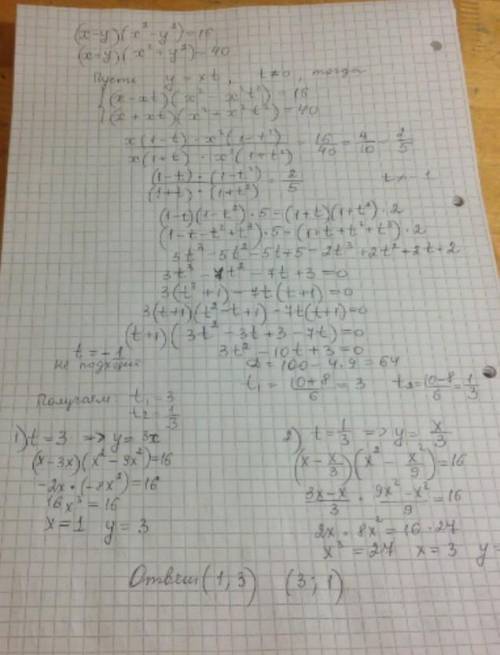 (x-y)(x²-y²)=16
(x+y)(x²+y²)=40
Пусть y=xt, t≠0, тогда
(x-xt)(x²-x²t²)=16
(x+xt)(x²+x²t²)=40
x(1-t)·x²(1-t²)/x(1+t)·x²(1+t²) = 16/40 = 4/10 = 2/5
(1-t)·(1-t²)/(1+t)·(1+t²) = 2/5 t≠-1
(1-t)(1-t²)·5=(1+t)(1+t²)·2
(1-t-t²+t³)·5=(1+t+t²+t³)·2
5t³-5t²-5t+5=2t³+2t²+2t+2
3t³-7t²-7t+3=0
3(t³+1)-7t(t+1)=0
3(t+1)(t²-t+1)-7t(t+1)=0
(t+1)(3t²-3t+3-7t)=0
t=-1
не подходит
3t²-10t+3=0
D=100-4·9=64
t₁=10+8/6=3 t₂=10-8/6=1/3
Получаем t₁=3
t₂=1/3
1) t=3 => y=3x
(x-3x)(x²-9x²)=16
-2x·(-8x²)=16
16x³=16
x=1 y=3
2) t=1/3 => y=x/3
(x-x/3)(x²-x²/9)=16
3x-x/3·9x²-x²/9=16
2x·8x²=16·27
x³=27 x=3 y=
Ответ (1;3) (3;1)